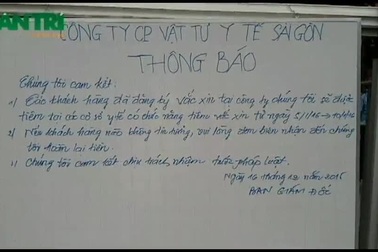 ANTRI
CÔNG TY CP VẬT TƯ Y TẾ SÀI GÒN
THÔNG BÁO
Chúng tôi cam kết:
Các khách hàng đã đăng ký vắc xin tại công ty chúng tôi sẽ được
tiêm tại các cơ sở y tế có chức năng tiêm vắc xin từ ngày
Nếu khách hàng nào không tin tưởng, vui lòng đem biên nhận đến chúng
tôi hoàn lại tiền.
Chúng tôi cam kết chịu trách nhiệm trước pháp luật.
Ngày 16 tháng 12 năm 2015
BAN GIÁM ĐỐC